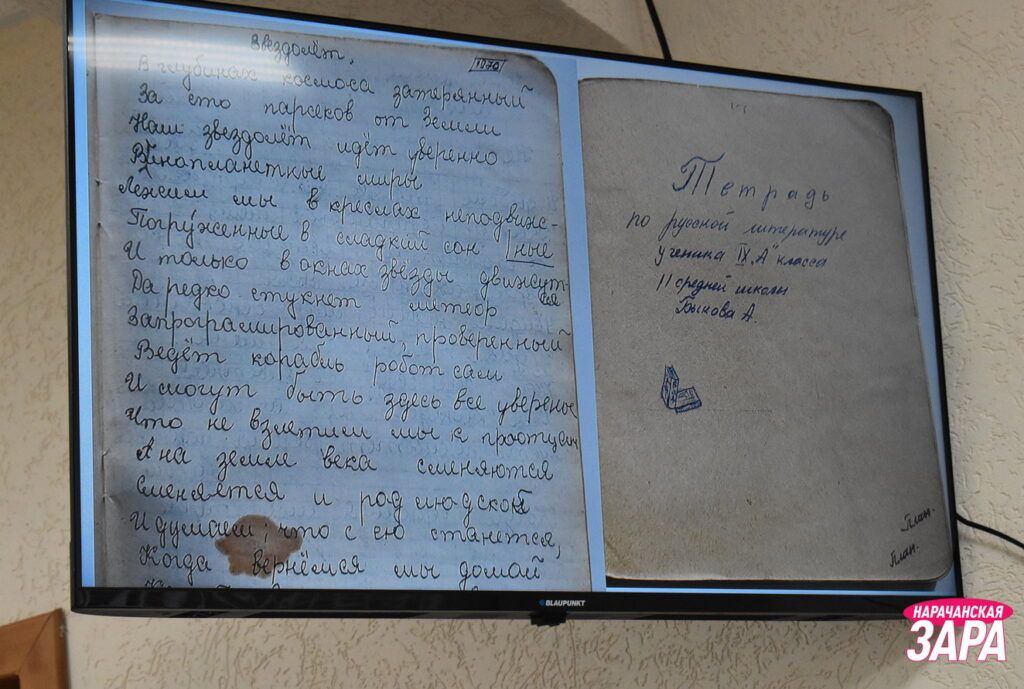 Звездолёт.
1970
В глубинах космоса затерянный
За сто парсеков от Земли
Наш звездолёт идёт уверенно
В инопланетные миры
Лежим мы в креслах неподвиж-
ные
Погруженные в сладкий сон
И только в окнах звёзды движутся
Да редко стукнет метеор
Запрограмированный, проверенный
Ведёт корабль робот сам
И могут быть здесь все уверены
Что не взлетим мы к праотцам
А на земле века сменяются
Сменяется и род людской
И думаем, что с ею станется,
Когда вернёмся мы домой
Тетрадь
по русской литературе
ученика IX "А" класса
11 средней школы
Быкова А.
План.
План.
BLAUPUNKT
НАРАЧАНСКАЯ
ЗАРА